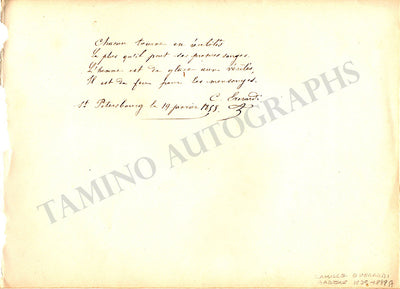 Chacun tourne en réalités
Le plus qu'il peut ses propres songes.
L'homme est de glace aux vérités,
Il est de feu pour les mensonges.
C. Everardi
St Petersbourg le 19 janvier 1858.
TAMINO AUTOGRAPHS
CAMILLE EVERARDI